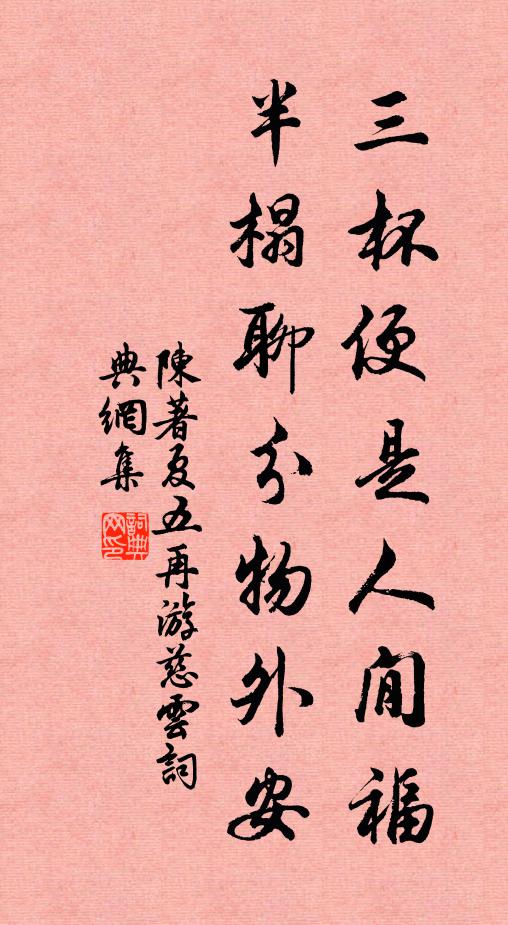 三杯便是人間福
半榻聊分物外安
陳著夏五再游慈雲詞
典網集
詞典網印